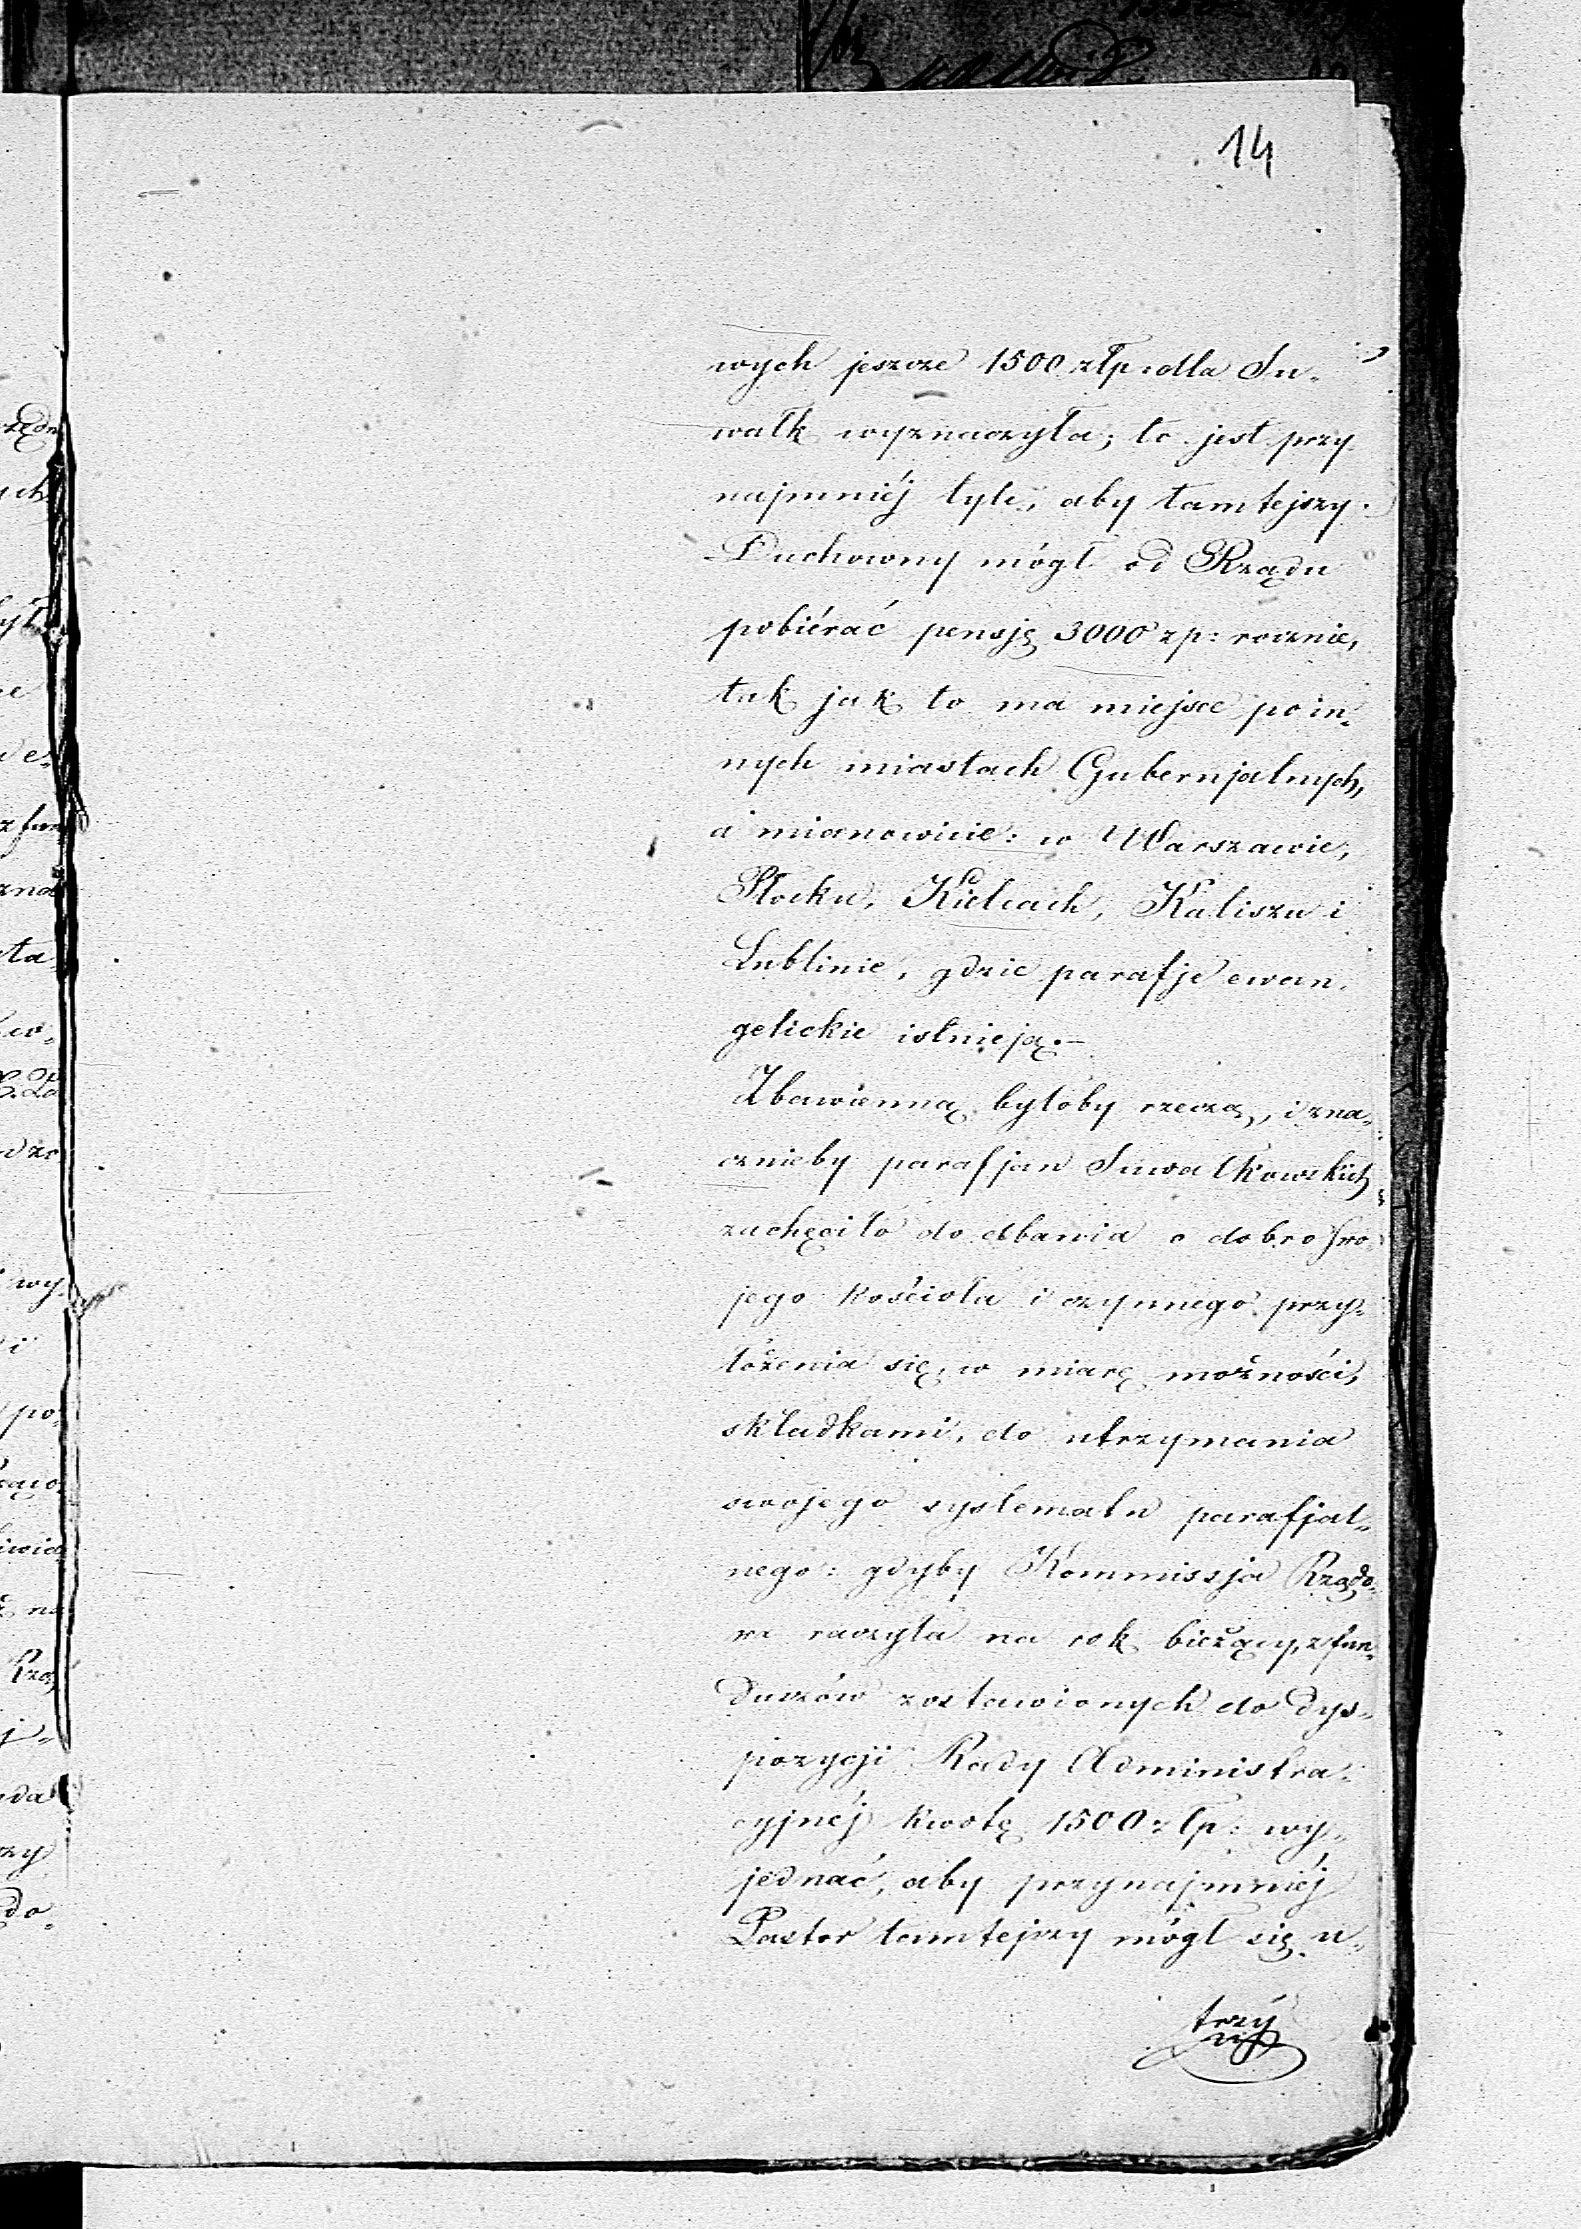 14
wych jeszcze 1500 złp: dla Su„
wałk wyznaczyła; to jest przy
najmniéj tyle, aby tamtejszy
Duchowny mógł od Rządu
pobiérać pensję 3000 zp: rocznie,
tak jak to ma miejsce po in„
nych miastach Gubernjalnych,
a mianowicie: w Warszawie,
Płocku, Kielcach, Kaliszu i
Lublinie, gdzie parafje ewan„
gelickie istnieją.—
Zbawienną byłoby rzeczą, i zna„
cznieby parafjan Suwałkowskich
zachęciło do dbania o dobro swo
jego kościoła i czynnego przy„
łożenia się, w miarę możności,
składkami, do utrzymania
swojego systematu parafjal„
nego: gdyby Kommissja Rządo„
wa raczyła na rok bieżący, z fun„
duszów zostawionych do dys„
pozycji Rady Administra„
cyjnéj kwotę 1500 złp: wy„
jednać, aby przynajmniéj
Pastor tamtejszy mógł się u„
trzy